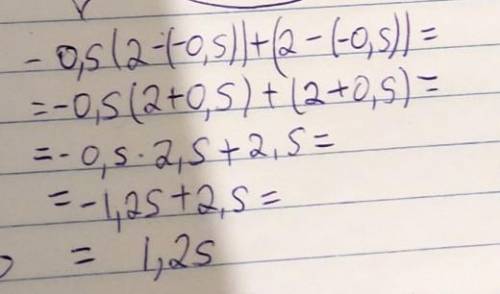 - 0,5(2-(-0,5))+(2-(-0,5))=
=-0,5(2+0,5)+(2+0,5)=
=-0,5·2,5+2,5=
=-1,25+2,5=
= 1,25